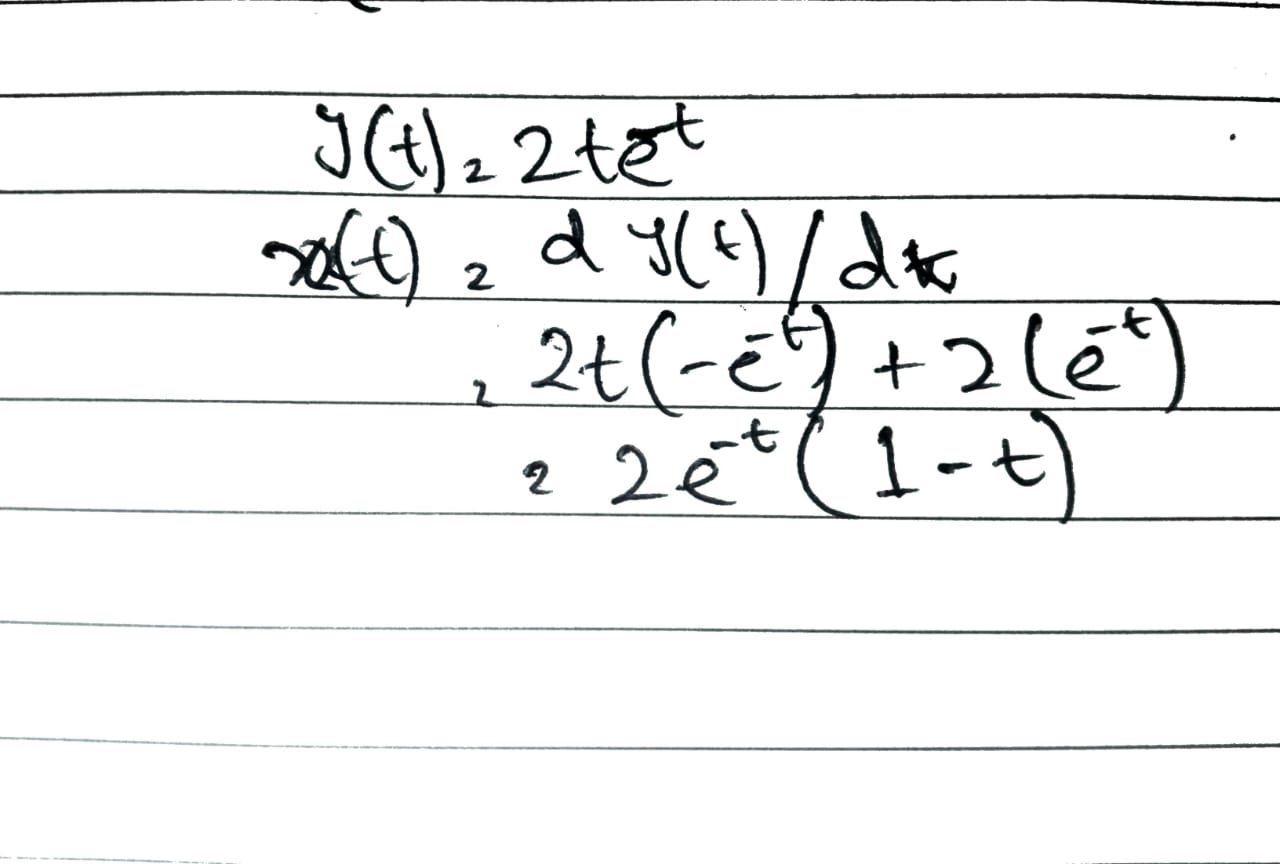 y(t) = 2te^-t
x(t) = d y(t)/dt
= 2t(-e^-t) + 2(e^-t)
= 2e^-t(1-t)